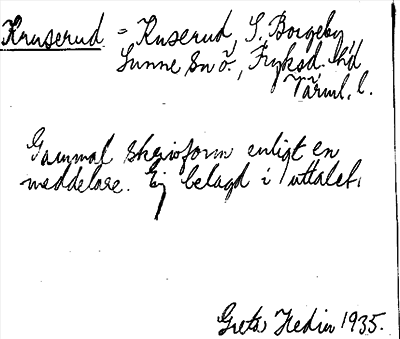 Knuserud = Kuserud, S. Borgeby,
Sunne sn ö., Fryksd. hd
Värml. l.
Gammal skrivform enligt en
meddelare. Ej belagd i uttalet.
Greta Hedin 1935.